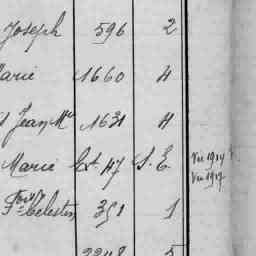 Joseph 596 2
Marie 1660 4
Jean Mie 1631 4
Marie Et. 47 S. E Vu 1914
Vu 1917
Célestin 351 1
2248 5